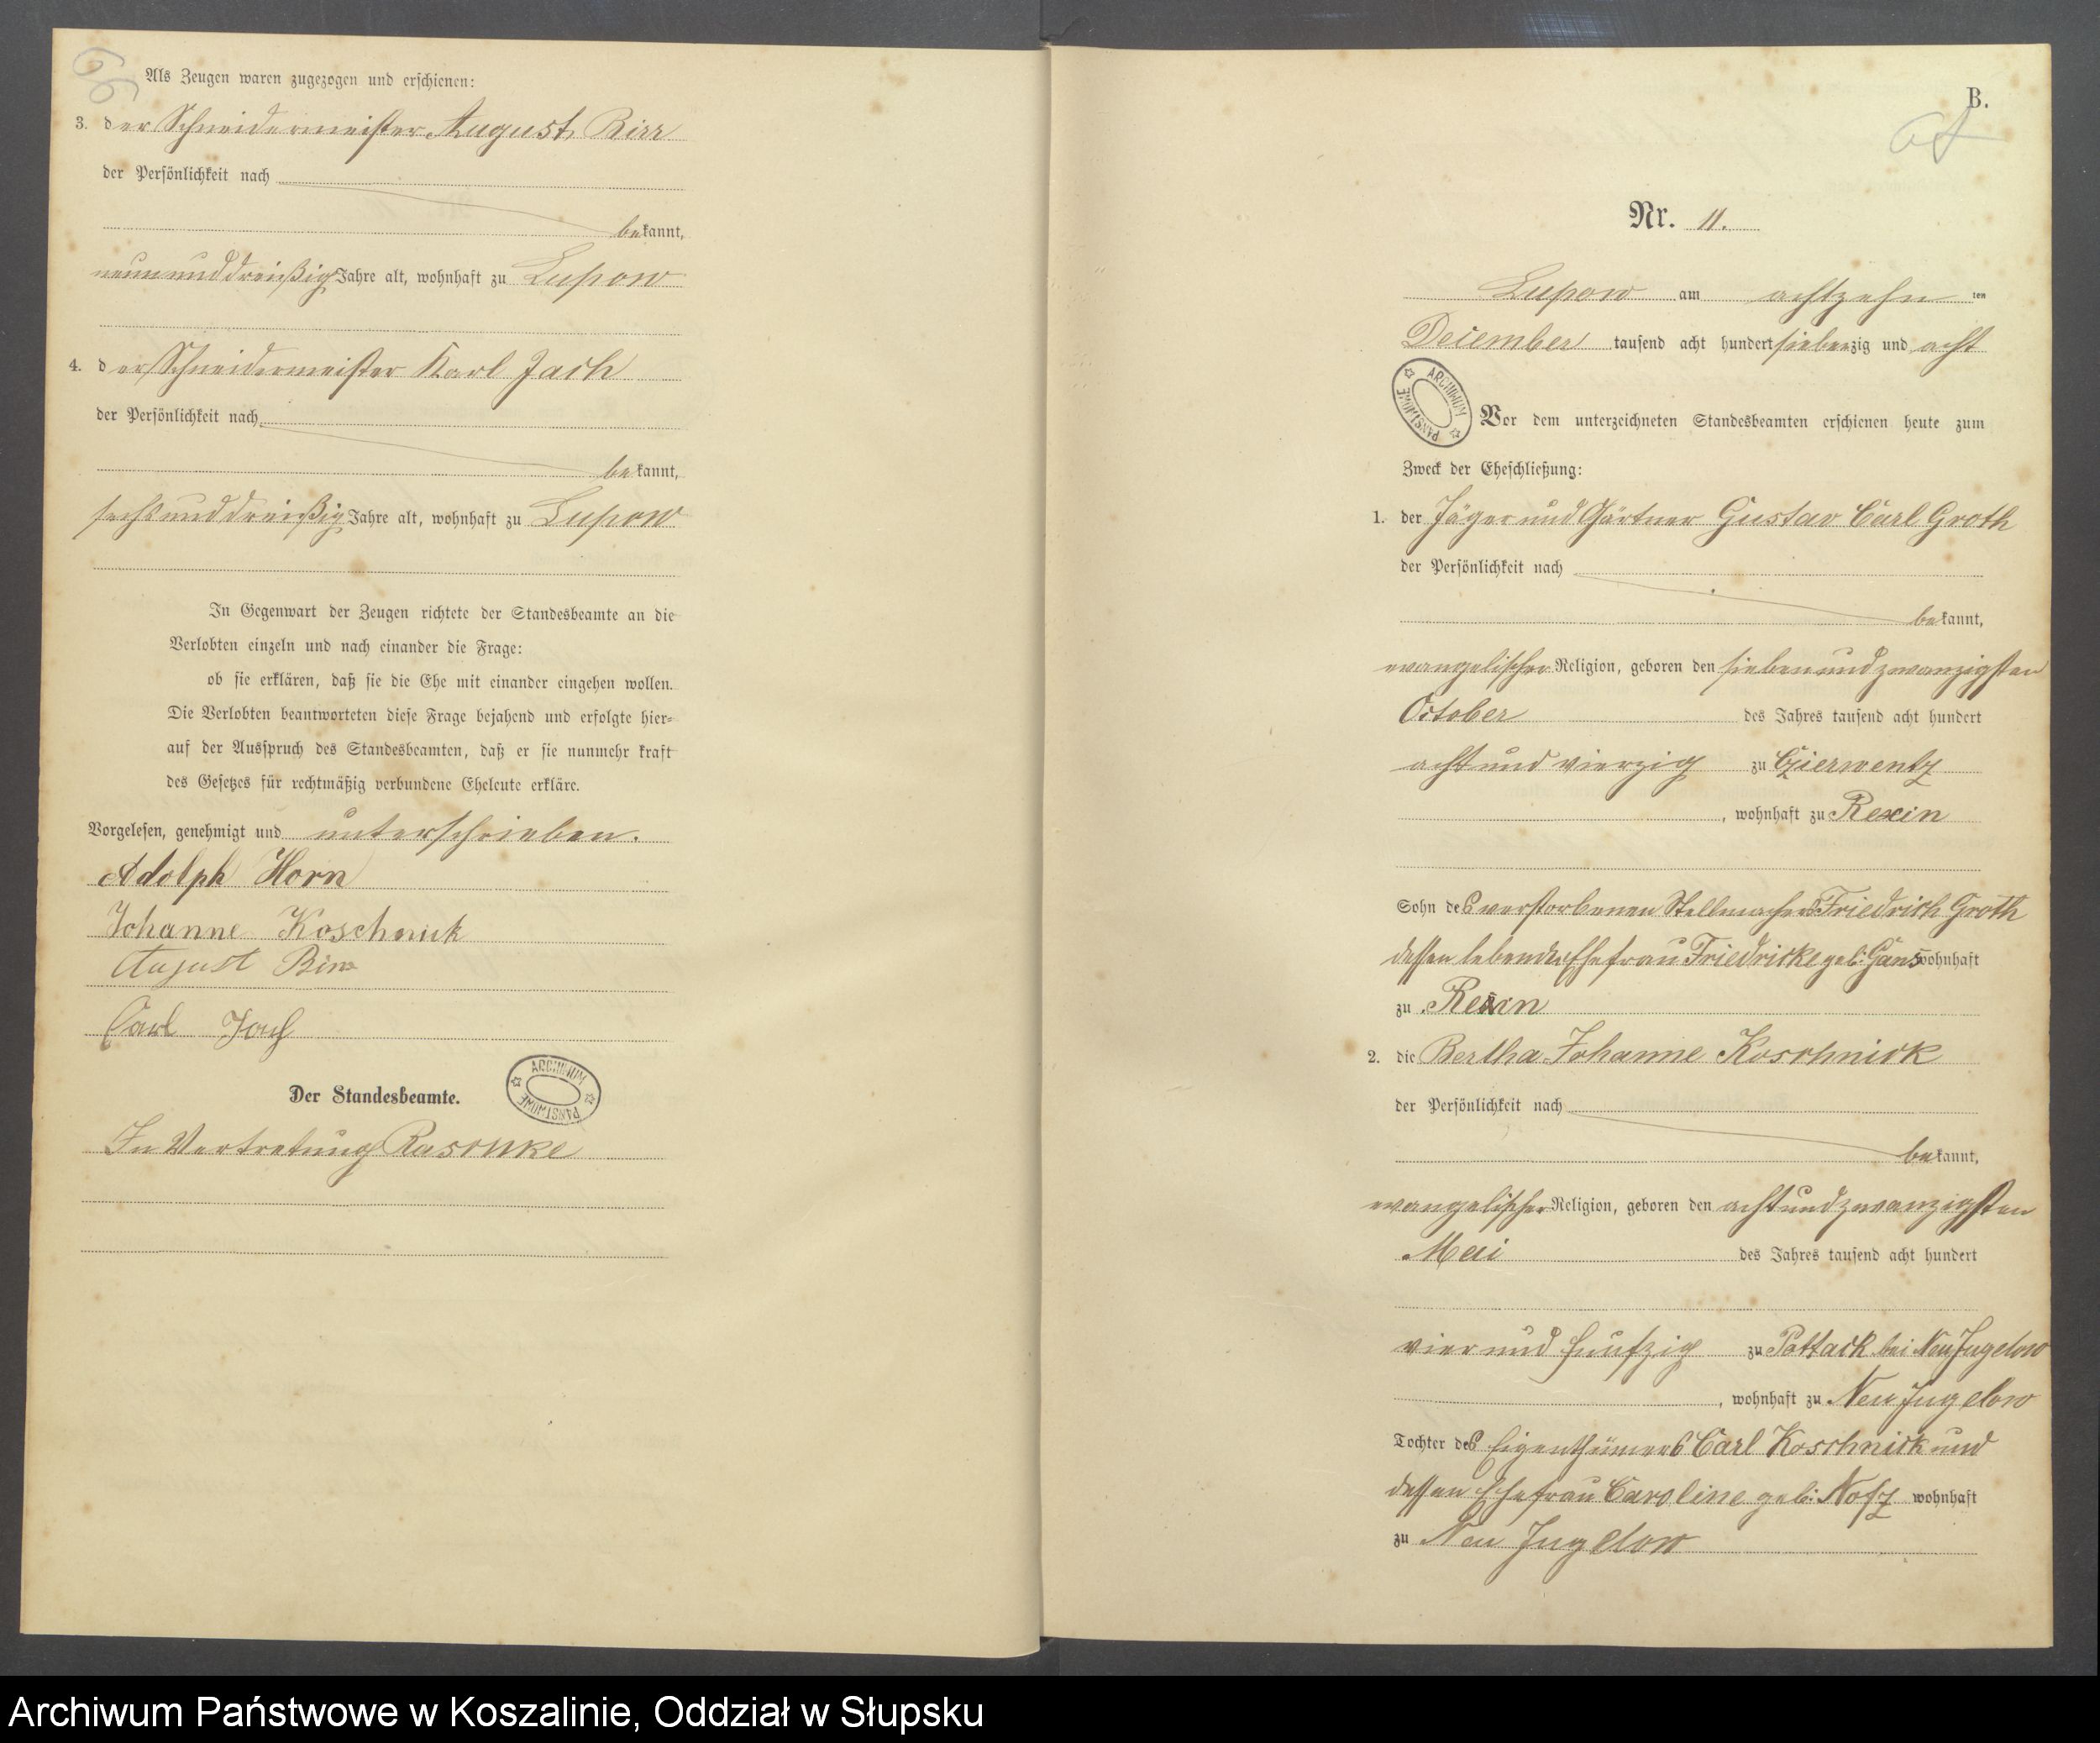 Als Zeugen waren zugezogen und erschienen:
3. der Schneidermeister August Birr
der Persönlichkeit nach
bekannt,
neun und dreißig Jahre alt, wohnhaft zu Lupow
4. der Schneidermeister Karl Jach
der Persönlichkeit nach
bekannt,
sechs und dreißig Jahre alt, wohnhaft zu Lupow
In Gegenwart der Zeugen richtete der Standesbeamte an die
Verlobten einzeln und nach einander die Frage:
ob sie erklären, daß sie die Ehe mit einander eingehen wollen.
Die Verlobten beantworteten diese Frage bejahend und erfolgte hier-
auf der Ausspruch des Standesbeamten, daß er sie nunmehr kraft
des Gesetzes für rechtmäßig verbundene Eheleute erkläre.
Vorgelesen, genehmigt und unterschrieben.
Adolph Horn
Johanne Koschnick
August Birr
Carl Jach
Der Standesbeamte.
ARCHIWUM PAŃSTWOWE
In Vertretung Raschke
B.
67
Nr. 11.
Lupow am achtzehn ten
December tausend acht hundert siebenzig und acht
ARCHIWUM PAŃSTWOWE
Vor dem unterzeichneten Standesbeamten erschienen heute zum
Zweck der Eheschließung:
1. der Jäger und Gärtner Gustav Carl Groth
der Persönlichkeit nach
bekannt,
evangelischer Religion, geboren den sieben und zwanzigsten
October des Jahres tausend acht hundert
acht und vierzig zu Czierwentz
, wohnhaft zu Rexin
Sohn des verstorbenen Stellmachers Friedrich Groth
dessen lebender Ehefrau Friedricke geb: Gans wohnhaft
zu Rexin
2. die Bertha Johanne Koschnick
der Persönlichkeit nach
bekannt,
evangelischer Religion, geboren den acht und zwanzigsten
Mai des Jahres tausend acht hundert
vier und funfzig zu Pottack bei Neu Jugelow
, wohnhaft zu Neu Jugelow
Tochter des Eigenthümers Carl Koschnick und
dessen Ehefrau Caroline geb: Nofz wohnhaft
zu Neu Jugelow
Archiwum Państwowe w Koszalinie, Oddział w Słupsku